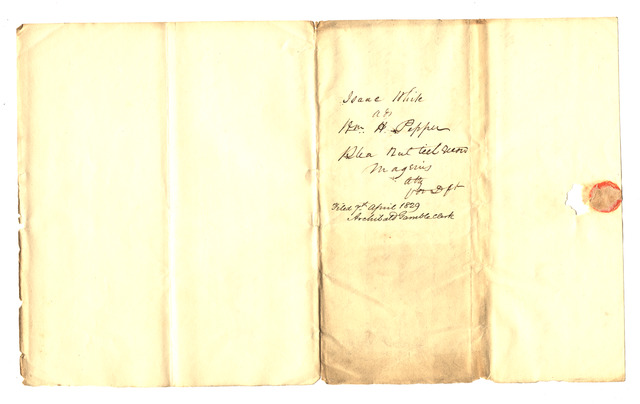 Isaac White
ads
Wm. H Pepper
Plea Nul tiel Record
Maginis
atty
for Deft
Filed 7th April 1829
Archibald Gamble Clerk